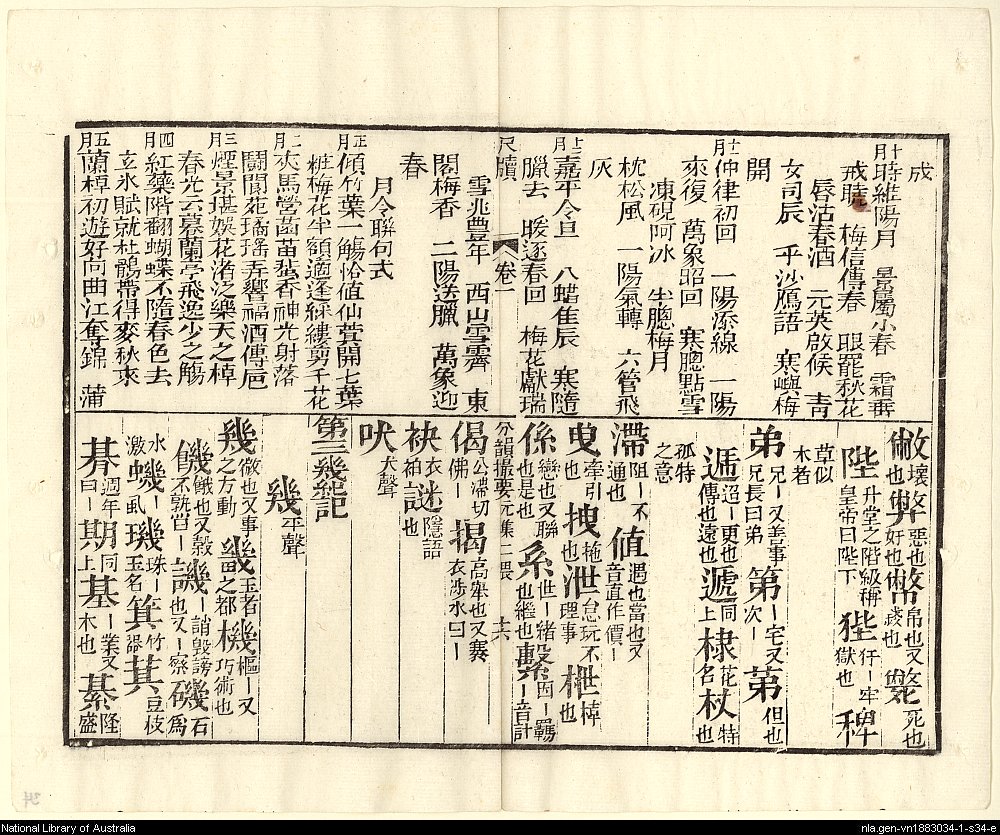 成
十月時維陽月 景屬小春 霜番
戒曉 梅信傳春 眼罷秋花
唇沽春酒 元英啟候 青
女司辰 平沙鴈語 寒嶼梅
開
十一月仲律初回 一陽添線 一陽
來復 萬象昭回 寒聰點雪
凍硯呵冰 半聰梅月
枕松風 一陽氣轉 六管飛
灰
十二月嘉平令旦 八蜡隹辰 寒隨
臘去 暖逐春回 梅花獻瑞
尺牘 卷一
雪兆豐年 西山雪霽 東
閣梅香 二陽送臘 萬象迎
春
月令聯句式
正月傾竹葉一觴恰值仙蓂開七葉
粧梅花半額適逢綵縷剪千花
二月夾馬營菡萏香神光射落
鬬閬苑瑤弄響福酒傳巵
三月煙景堪娛花渚泛樂天之棹
春光云暮蘭亭飛逸少之觴
四月紅藥階翻蝴蝶不隨春色去
立氷賦就杜鵑帶得麥秋來
五月蘭棹初遊好向曲江奪錦 蒲
敝壞也弊惡也又好也幣帛也又錢也斃死也
陛升堂之階級稱皇帝曰陛下狴犴一牢獄也稗
草似木者
弟兄一又善事兄長曰弟第一宅又次一第但也
遞迢一更也傳也遠也遞同上棣花名杕特也
孤特之意
滯阻一不通也值遇也當也又音直作價一
曳牽引也拽拖也泄怠玩不理事枻棹也
係戀也又聯也是也系世一緒也繼也繫因一羈一音計
分韻撮要元集二畏 十六
偈公滯切佛一揭高舉也又褰衣涉水曰一
袂衣袖謎隱語也
吠犬聲
第三幾紀記
幾平聲
幾微也又事之方動畿王者之都機樞一又巧術也
饑餓也又穀不熟曰一譏一誚毀謗也又一察磯石為
水激蟣虱璣珠一玉名箕竹器萁豆枝
朞週年曰一期同上基一業又木也綦隆盛
National Library of Australia
nla.gen-vn1883034-1-s34-e